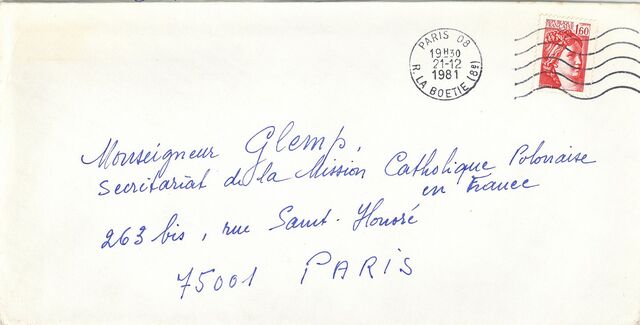 PARIS 08
19H30
21-12
1981
R. LA BOETIE (8e)
REPUBLIQUE FRANCAISE
1,60
Monseigneur Glemp,
Secrétariat de la Mission Catholique Polonaise
en France
263 bis, rue Saint-Honoré
75001 PARIS